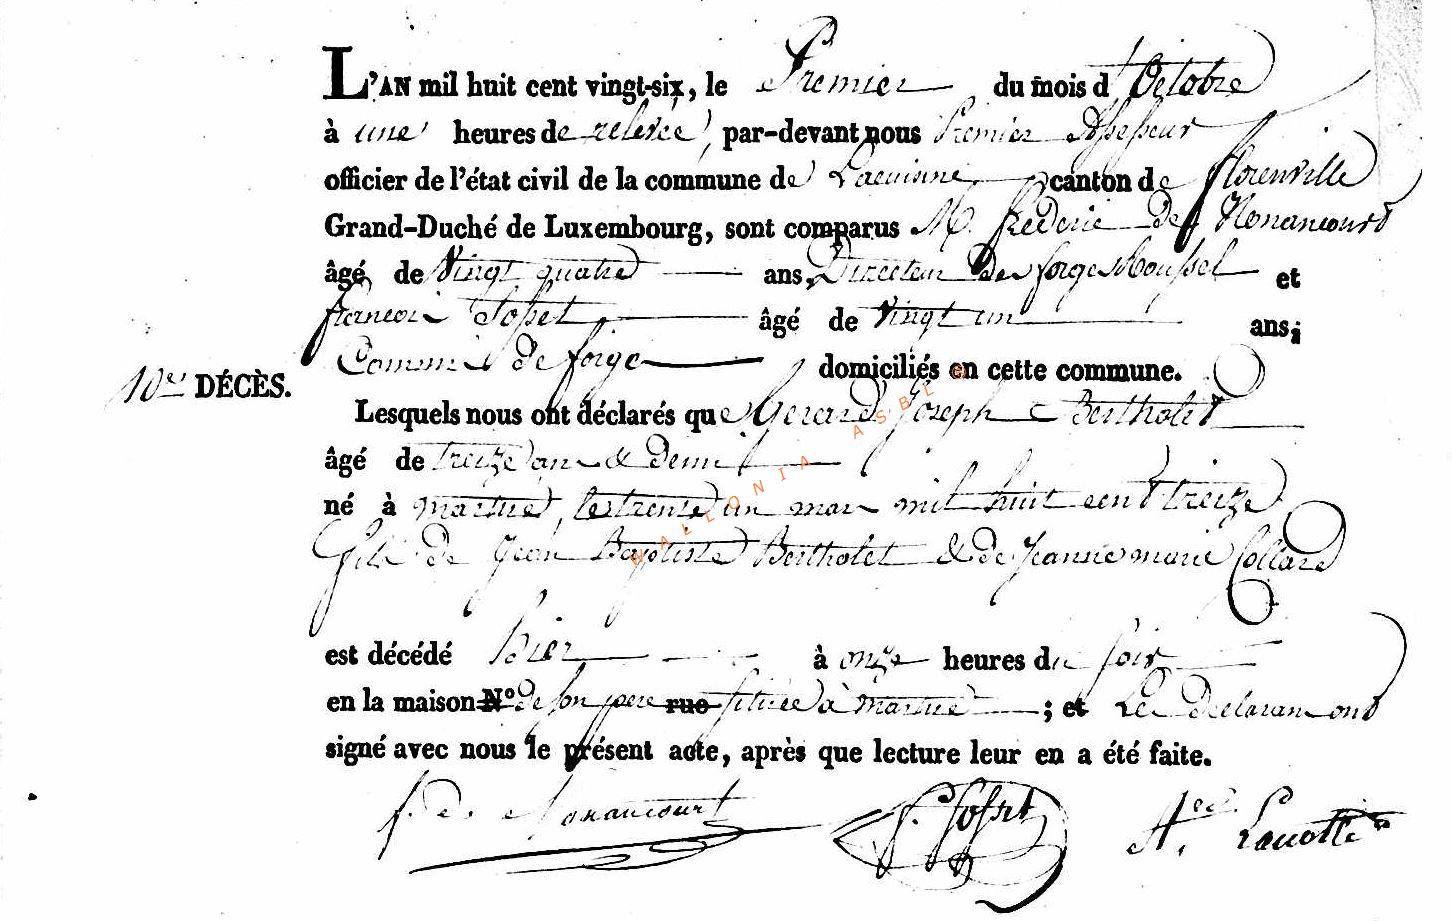 L'AN mil huit cent vingt-six, le Premier du mois d'Octobre
à une heures de relevée, par-devant nous Premier Assesseur
officier de l'état civil de la commune de Lacuisine canton de Florenville
Grand-Duché de Luxembourg, sont comparus M. frederic de Nonancourt
âgé de vingt quatre ans, Directeur des forges Roussel et
francois Sosset âgé de vingt un ans,
Commis de forge domiciliés en cette commune.
10e DÉCÈS.
Lesquels nous ont déclarés que Gerard Joseph Bertholet
âgé de treize ans & demi
né à martué, le trente un mars mil huit cent treize
fils de Jean Baptiste Bertholet & de Jeanne marie Collard
est décédé hier à onze heures du soir
en la maison N° de son pere rue située à martué ; et les declarans ont
signé avec nous le présent acte, après que lecture leur en a été faite.
f. de Nonancourt f. Sosset A. Lanotte
WALLONIA ASBL ©